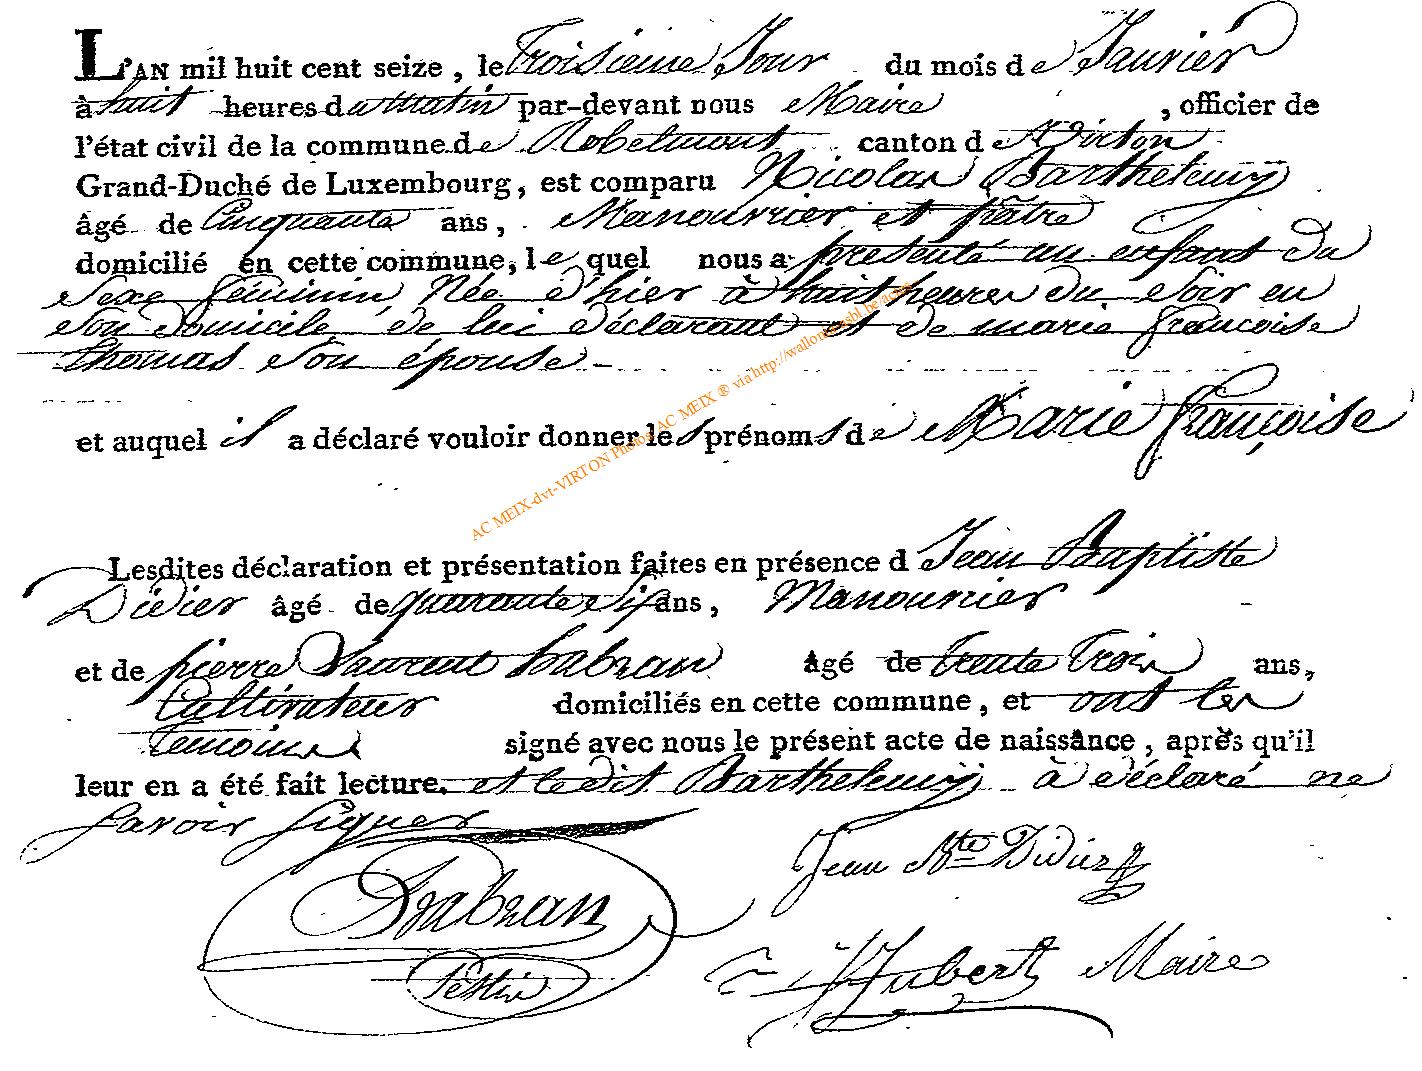 L'AN mil huit cent seize, le Troisieme Jour du mois de Janvier
à huit heures du matin par-devant nous Maire , officier de
l'état civil de la commune de Robelmont canton de Virton
Grand-Duché de Luxembourg, est comparu Nicolas Barthelemy
âgé de Cinquante ans, Manouvrier et pâtre
domicilié en cette commune, le quel nous a presenté un enfant du
Sexe féminin Née d'hier à huit heures du Soir en
Son domicile, de lui déclarant et de marie françoise
thomas Son épouse
et auquel il a déclaré vouloir donner les prénoms de Marie françoise
Lesdites déclaration et présentation faites en présence d Jean Baptiste
Didier âgé de quarante Six ans, Manouvrier
et de pierre Laurent habran âgé de trente trois ans,
Cultivateur domiciliés en cette commune, et ont les
temoins signé avec nous le présent acte de naissance, après qu'il
leur en a été fait lecture. et ledit Barthelemy à déclaré ne
Savoir Signer
Jean Bte Didier
habran
hubert Maire
AC MEIX-dvt-VIRTON Photos AC MEIX ® via http://wallonica